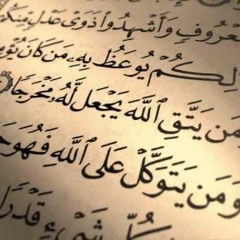 عْرُوفٍ وَأَشْهِدُوا۟ ذَوَىْ عَدْلٍ مِّنكُمْ
لِكُمْ يُوعَظُ بِهِۦ مَن كَانَ يُؤْمِ
مَن يَتَّقِ ٱللَّهَ يَجْعَل لَّهُۥ مَخْرَجًا
وَمَن يَتَوَكَّلْ عَلَى ٱللَّهِ فَهُوَ حَ
لِّ شَىْءٍ قَدْرًا